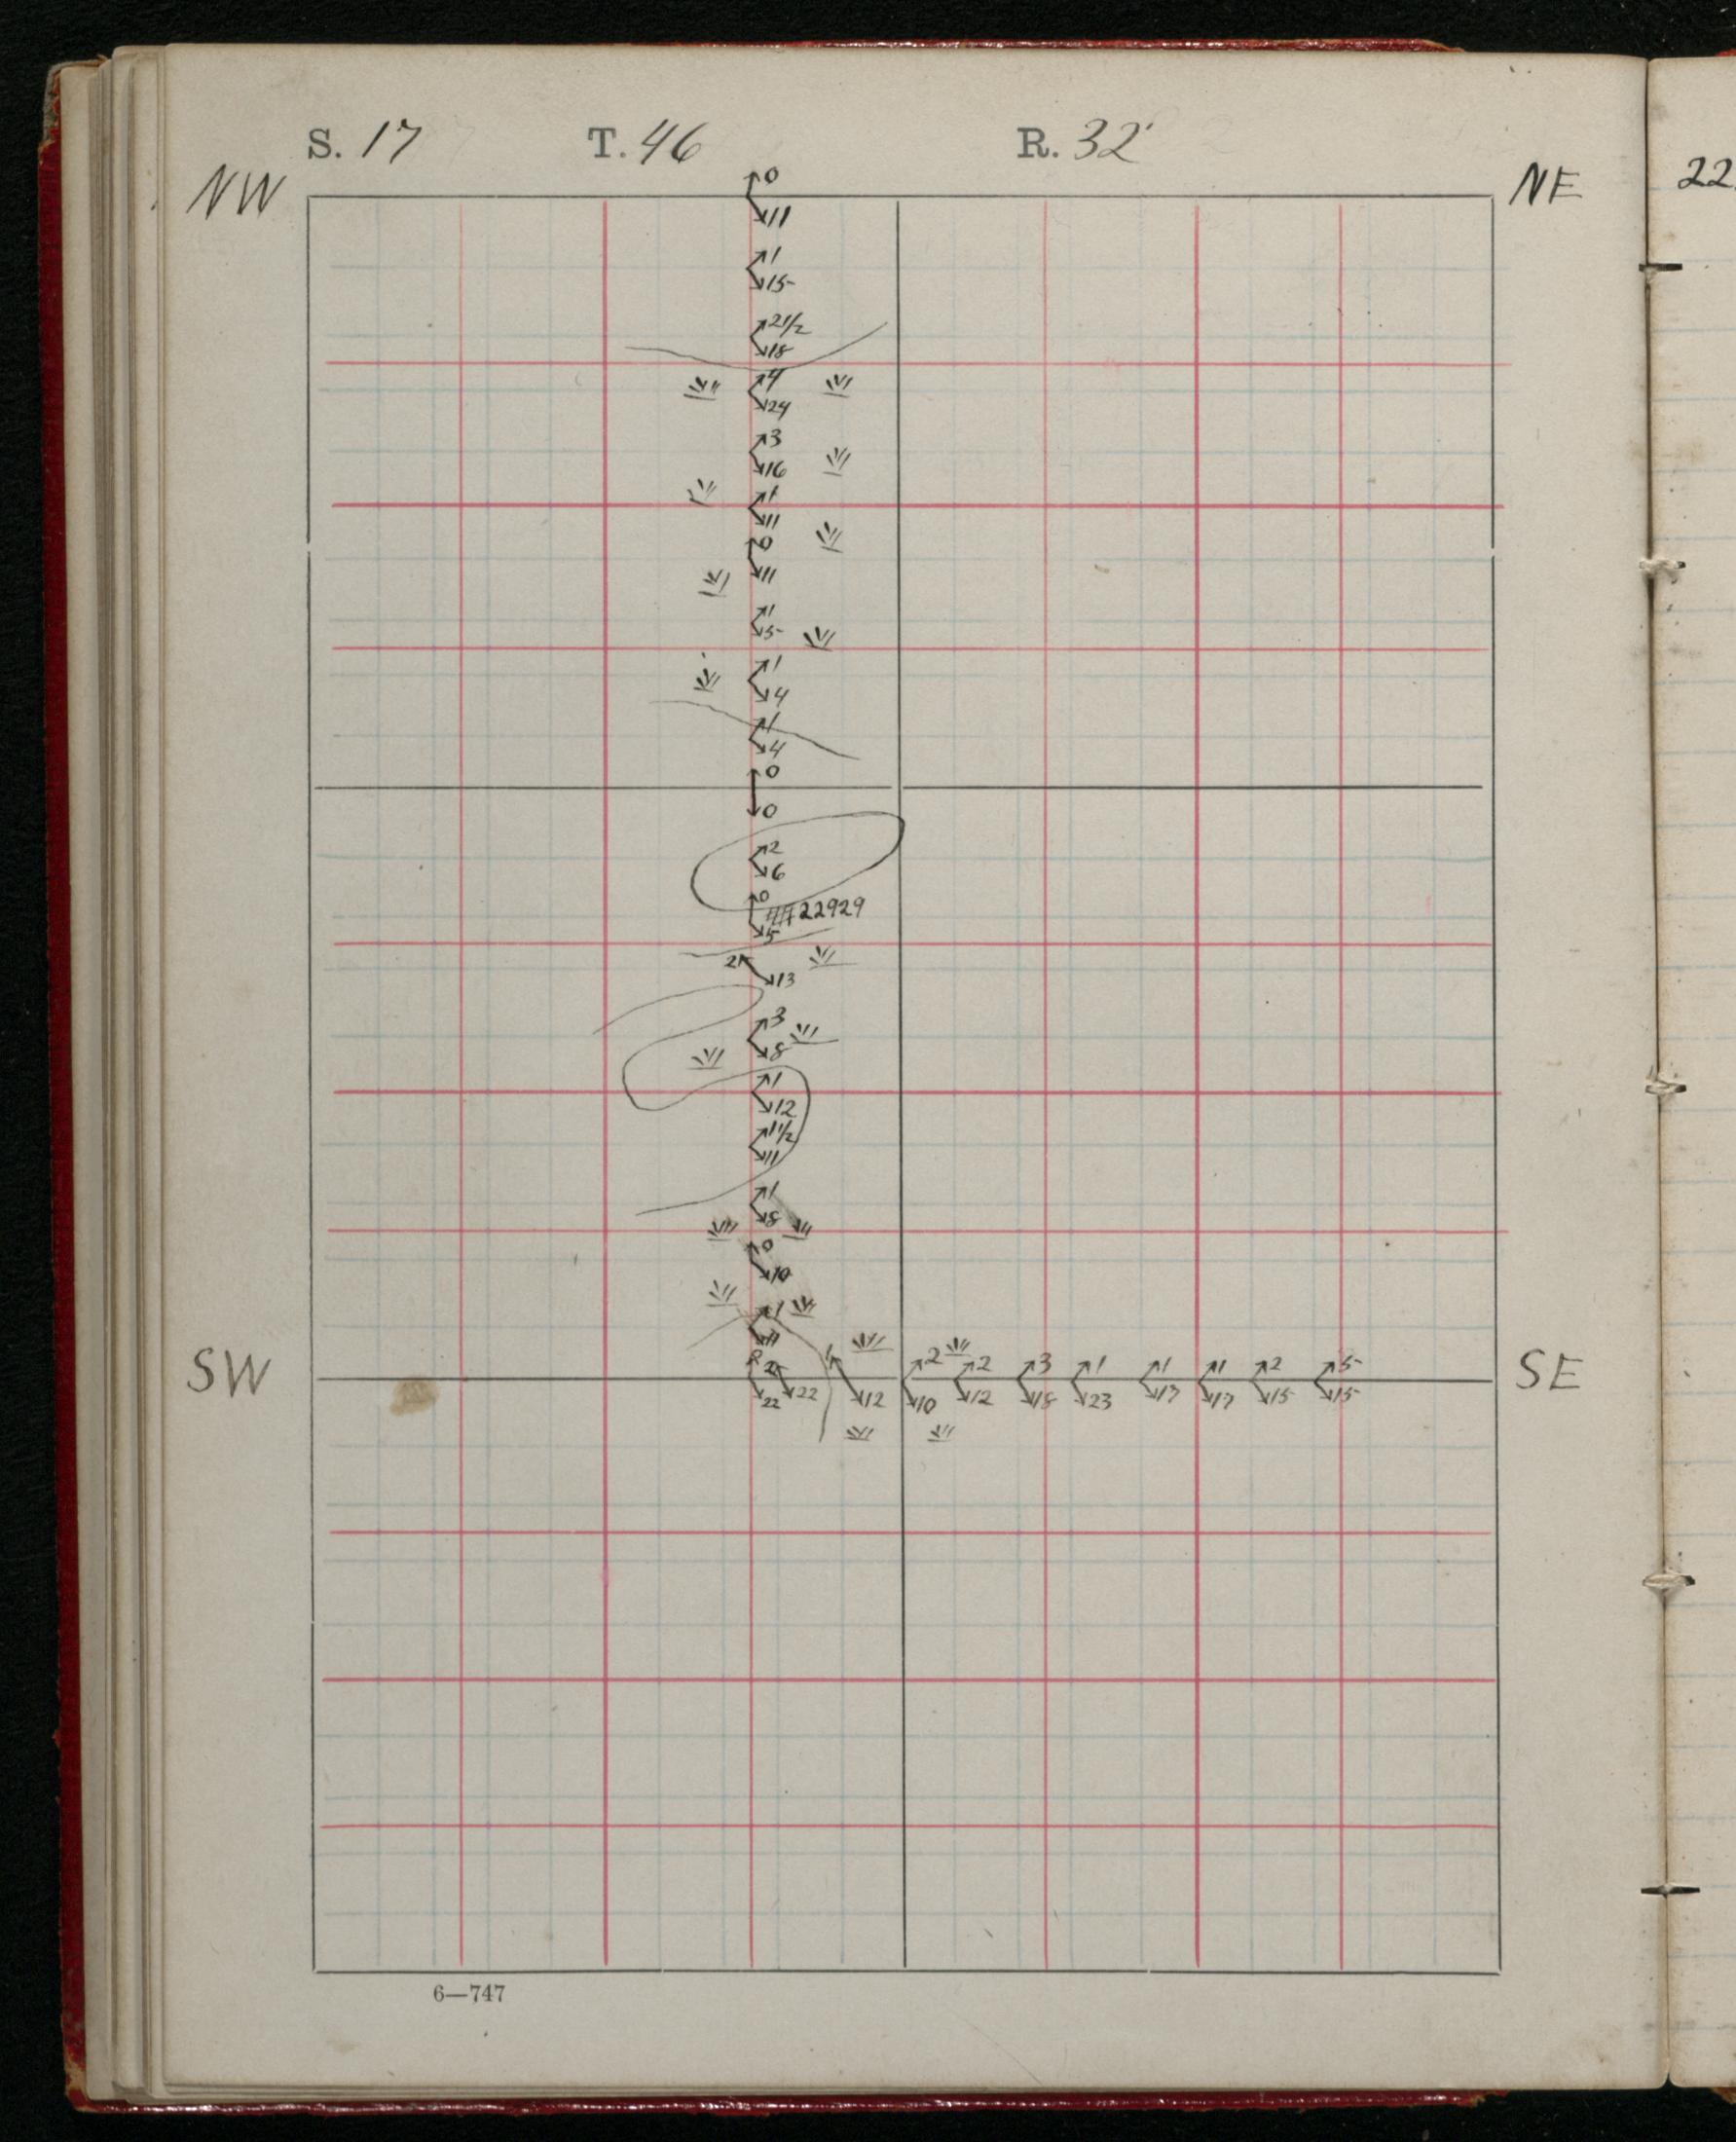 S. 17 T. 46 R. 32
NW NE
22
0
11
1
15
2 1/2
18
4
24
3
16
1
11
0
11
1
5
1
4
1
4
0
0
2
6
0
22929
5
2
13
3
8
1
12
1 1/2
11
1
8
0
10
1
11
SW SE
2 1 2 2 3 1 1 1 2 5
22 22 12 10 12 18 23 17 17 15 15
6—747